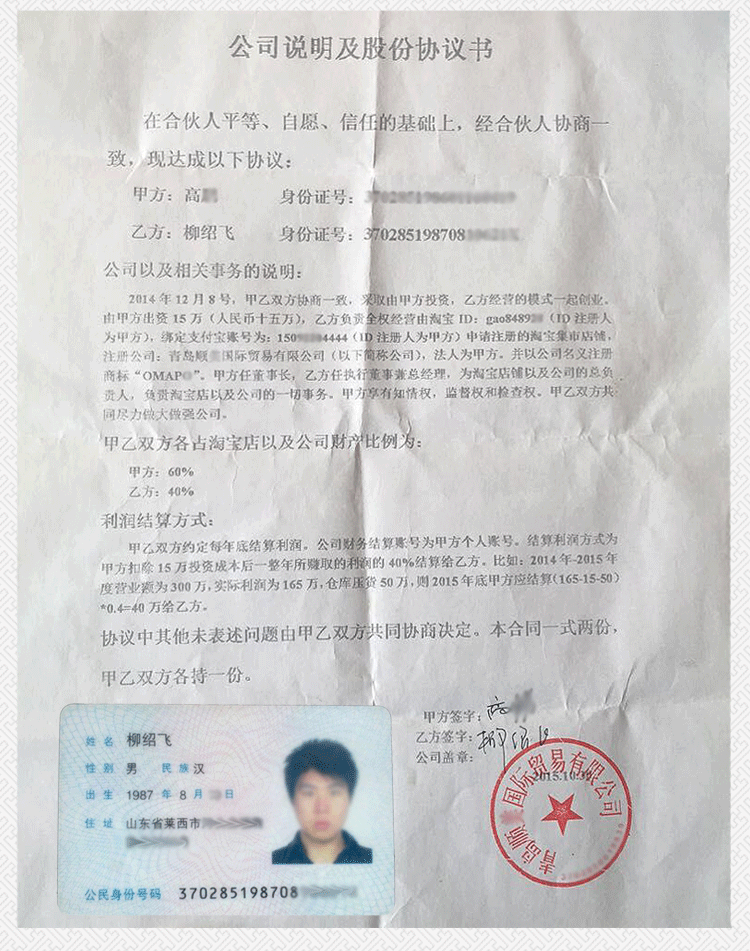 公司说明及股份协议书
在合伙人平等、自愿、信任的基础上，经合伙人协商一
致，现达成以下协议：
甲方：高 身份证号：
乙方：柳绍飞 身份证号：370285198708
公司以及相关事务的说明：
2014年12月8号，甲乙双方协商一致，采取由甲方投资，乙方经营的模式一起创业。
由甲方出资15万（人民币十五万），乙方负责全权经营由淘宝ID：gao8489（ID注册人
为甲方），绑定支付宝账号为：150 4444（ID注册人为甲方）申请注册的淘宝集市店铺，
注册公司：青岛顺 国际贸易有限公司（以下简称公司），法人为甲方。并以公司名义注册
商标“OMAP ”。甲方任董事长，乙方任执行董事兼总经理，为淘宝店铺以及公司的总负
责人，负责淘宝店以及公司的一切事务。甲方享有知情权，监督权和检查权。甲乙双方共
同尽力做大做强公司。
甲乙双方各占淘宝店以及公司财产比例为：
甲方：60%
乙方：40%
利润结算方式：
甲乙双方约定每年底结算利润。公司财务结算账号为甲方个人账号。结算利润方式为
甲方扣除15万投资成本后一整年所赚取的利润的40%结算给乙方。比如：2014年-2015年
度营业额为300万，实际利润为165万，仓库压货50万，则2015年底甲方应结算（165-15-50）
*0.4=40万给乙方。
协议中其他未表述问题由甲乙双方共同协商决定。本合同一式两份，
甲乙双方各持一份。
甲方签字：
乙方签字：柳绍飞
公司盖章：
2015.10.
青岛顺 国际贸易有限公司
姓名 柳绍飞
性别 男 民族 汉
出生 1987 年 8 月 日
住址 山东省莱西市
公民身份号码 370285198708